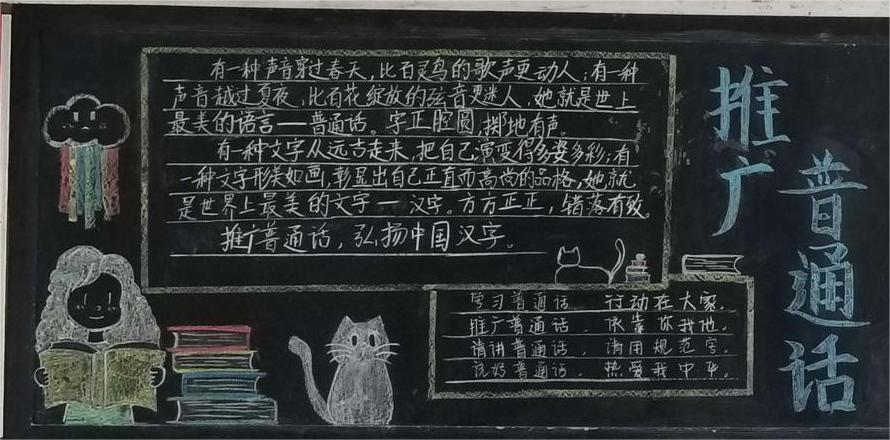 推广
普通话
有一种声音穿过春天，比百灵鸟的歌声更动人；有一种
声音越过夏夜，比百花绽放的弦音更迷人，她就是世上
最美的语言一普通话。字正腔圆，掷地有声。
有一种文字从远古走来，把自己演变得多姿多彩；有
一种文字形美如画，彰显出自己正直而高尚的品格，她就
是世界上最美的文字一汉字。方方正正，错落有致。
推广普通话，弘扬中国汉字。
学习普通话 行动在大家，
推广普通话， 依靠你我他，
请讲普通话， 请用规范字，
说好普通话， 热爱我中华。